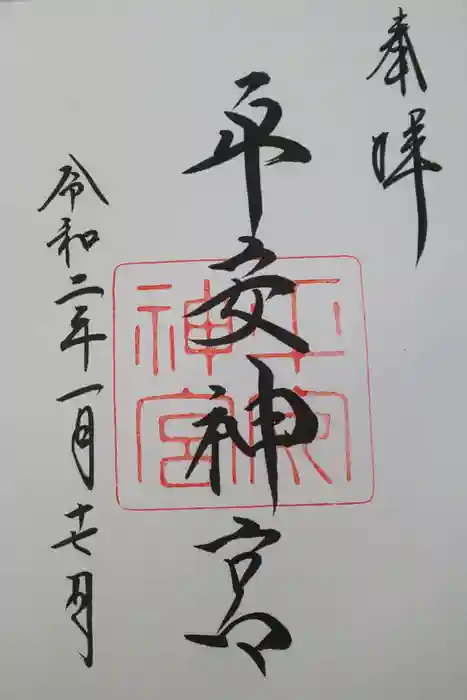 奉拝
平安神宮
平安神宮
令和二年一月十七日